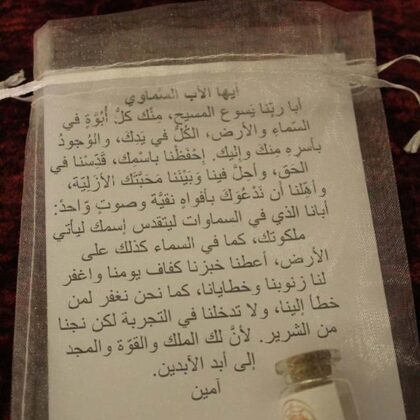 أيها الآب السّماوي
أبا ربِّنا يَسوع المسيح، مِنْك كلُّ أُبُوَّةٍ في
السّماءِ والأرض، الكُلُّ في يَدِكَ، والوُجودُ
بأسرِهِ مِنكَ وإليك. إحْفَظْنا باسْمِك، قَدّسْنا في
الحَق، وأجِلَّ فينا وَبَيْنَنا مَحَبَّتَك الأزَلِيَّة،
وأهِّلْنا أن نَدْعُوَكَ بأفواهٍ نقيَّة وصوتٍ وّاحدٍ:
أبانا الذي في السماوات ليتقدس إسمك ليأتي
ملكوتك، كما في السماء كذلك على
الأرض، أعطنا خبزنا كفاف يومنا واغفر
لنا زنوبنا وخطايانا، كما نحن نغفر لمن
خطأ إلينا، ولا تدخلنا في التجربة لكن نجنا
من الشرير. لأنَّ لك الملك والقوّة والمجد
إلى أبد الآبدين.
آمين